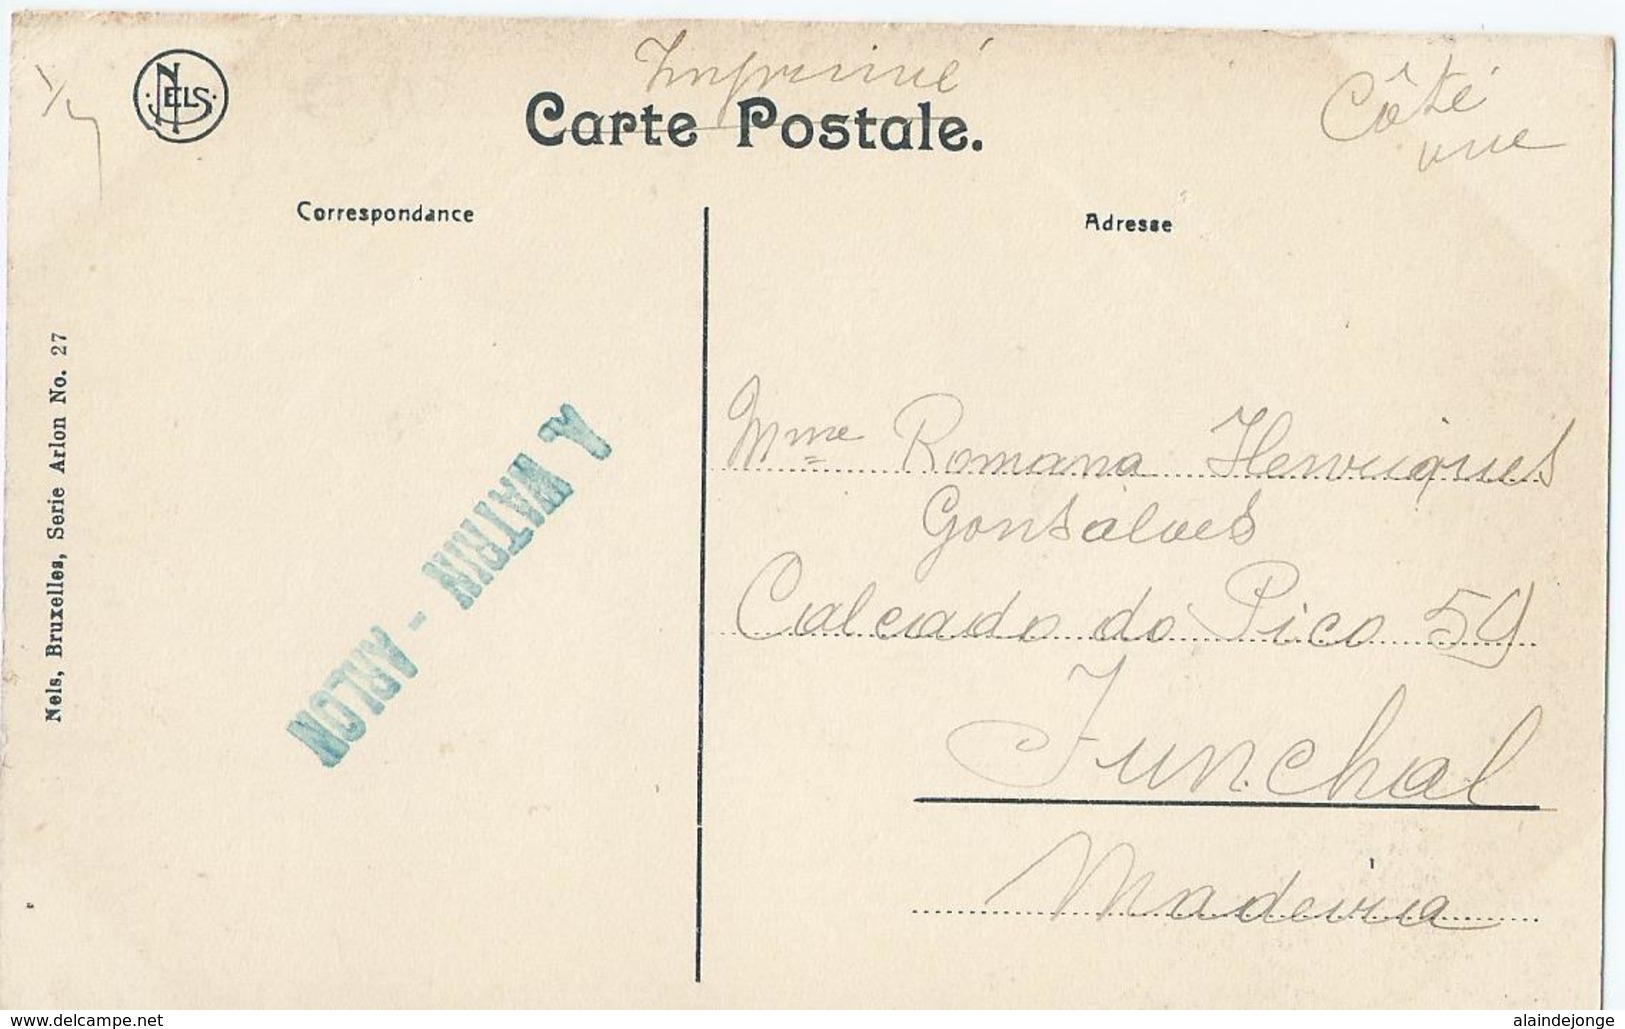 Imprimé
Côté
vue
NELS
Carte Postale.
Correspondance
Adresse
Nels, Bruxelles, Serie Arlon No. 27
J. WATRIN - ARLON
Mme Romana Henriques
Gonsalves
Calcado do Pico 59
Funchal
Madeira
www.delcampe.net
alaindejonge